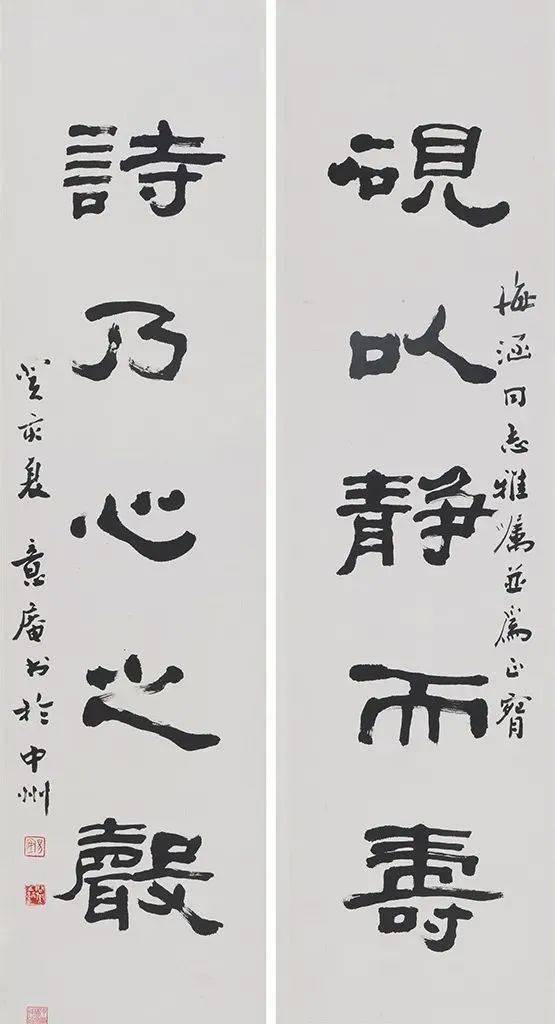 涵同志雅嘱並爲正
硯以靜而壽
詩乃心之聲
癸亥夏 意庵书於中州